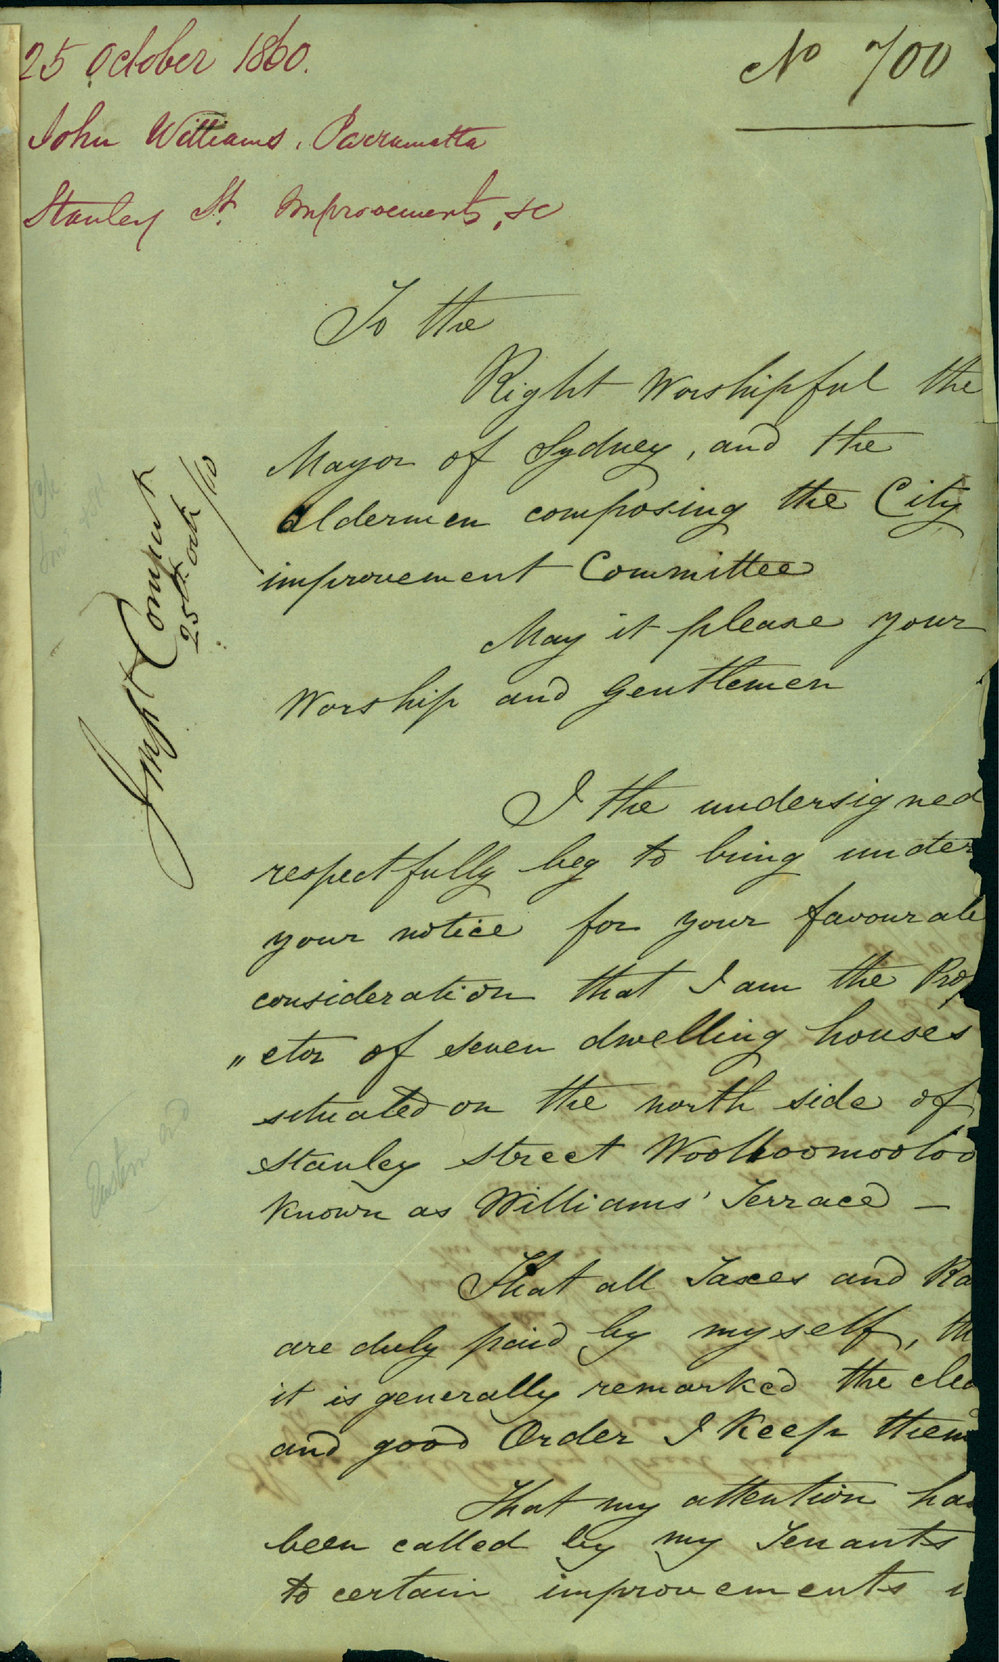 25 October 1860.
No 700
John Williams, Parramatta
Stanley St. Improvements, &c
To the
Right Worshipful the
Mayor of Sydney, and the
Aldermen composing the City
improvement Committee
May it please your
Worship and Gentlemen
Impt Commt
25th Oct /60
I the undersigned
respectfully beg to bring under
your notice for your favourable
consideration that I am the Prop
" etor of seven dwelling houses
situated on the north side of
Stanley Street Woolloomooloo
known as Williams' Terrace —
That all Taxes and Ra
are duly paid by myself, th
it is generally remarked the clea
and good Order I keep them
That my attention has
been called by my Tenants
to certain improvements i